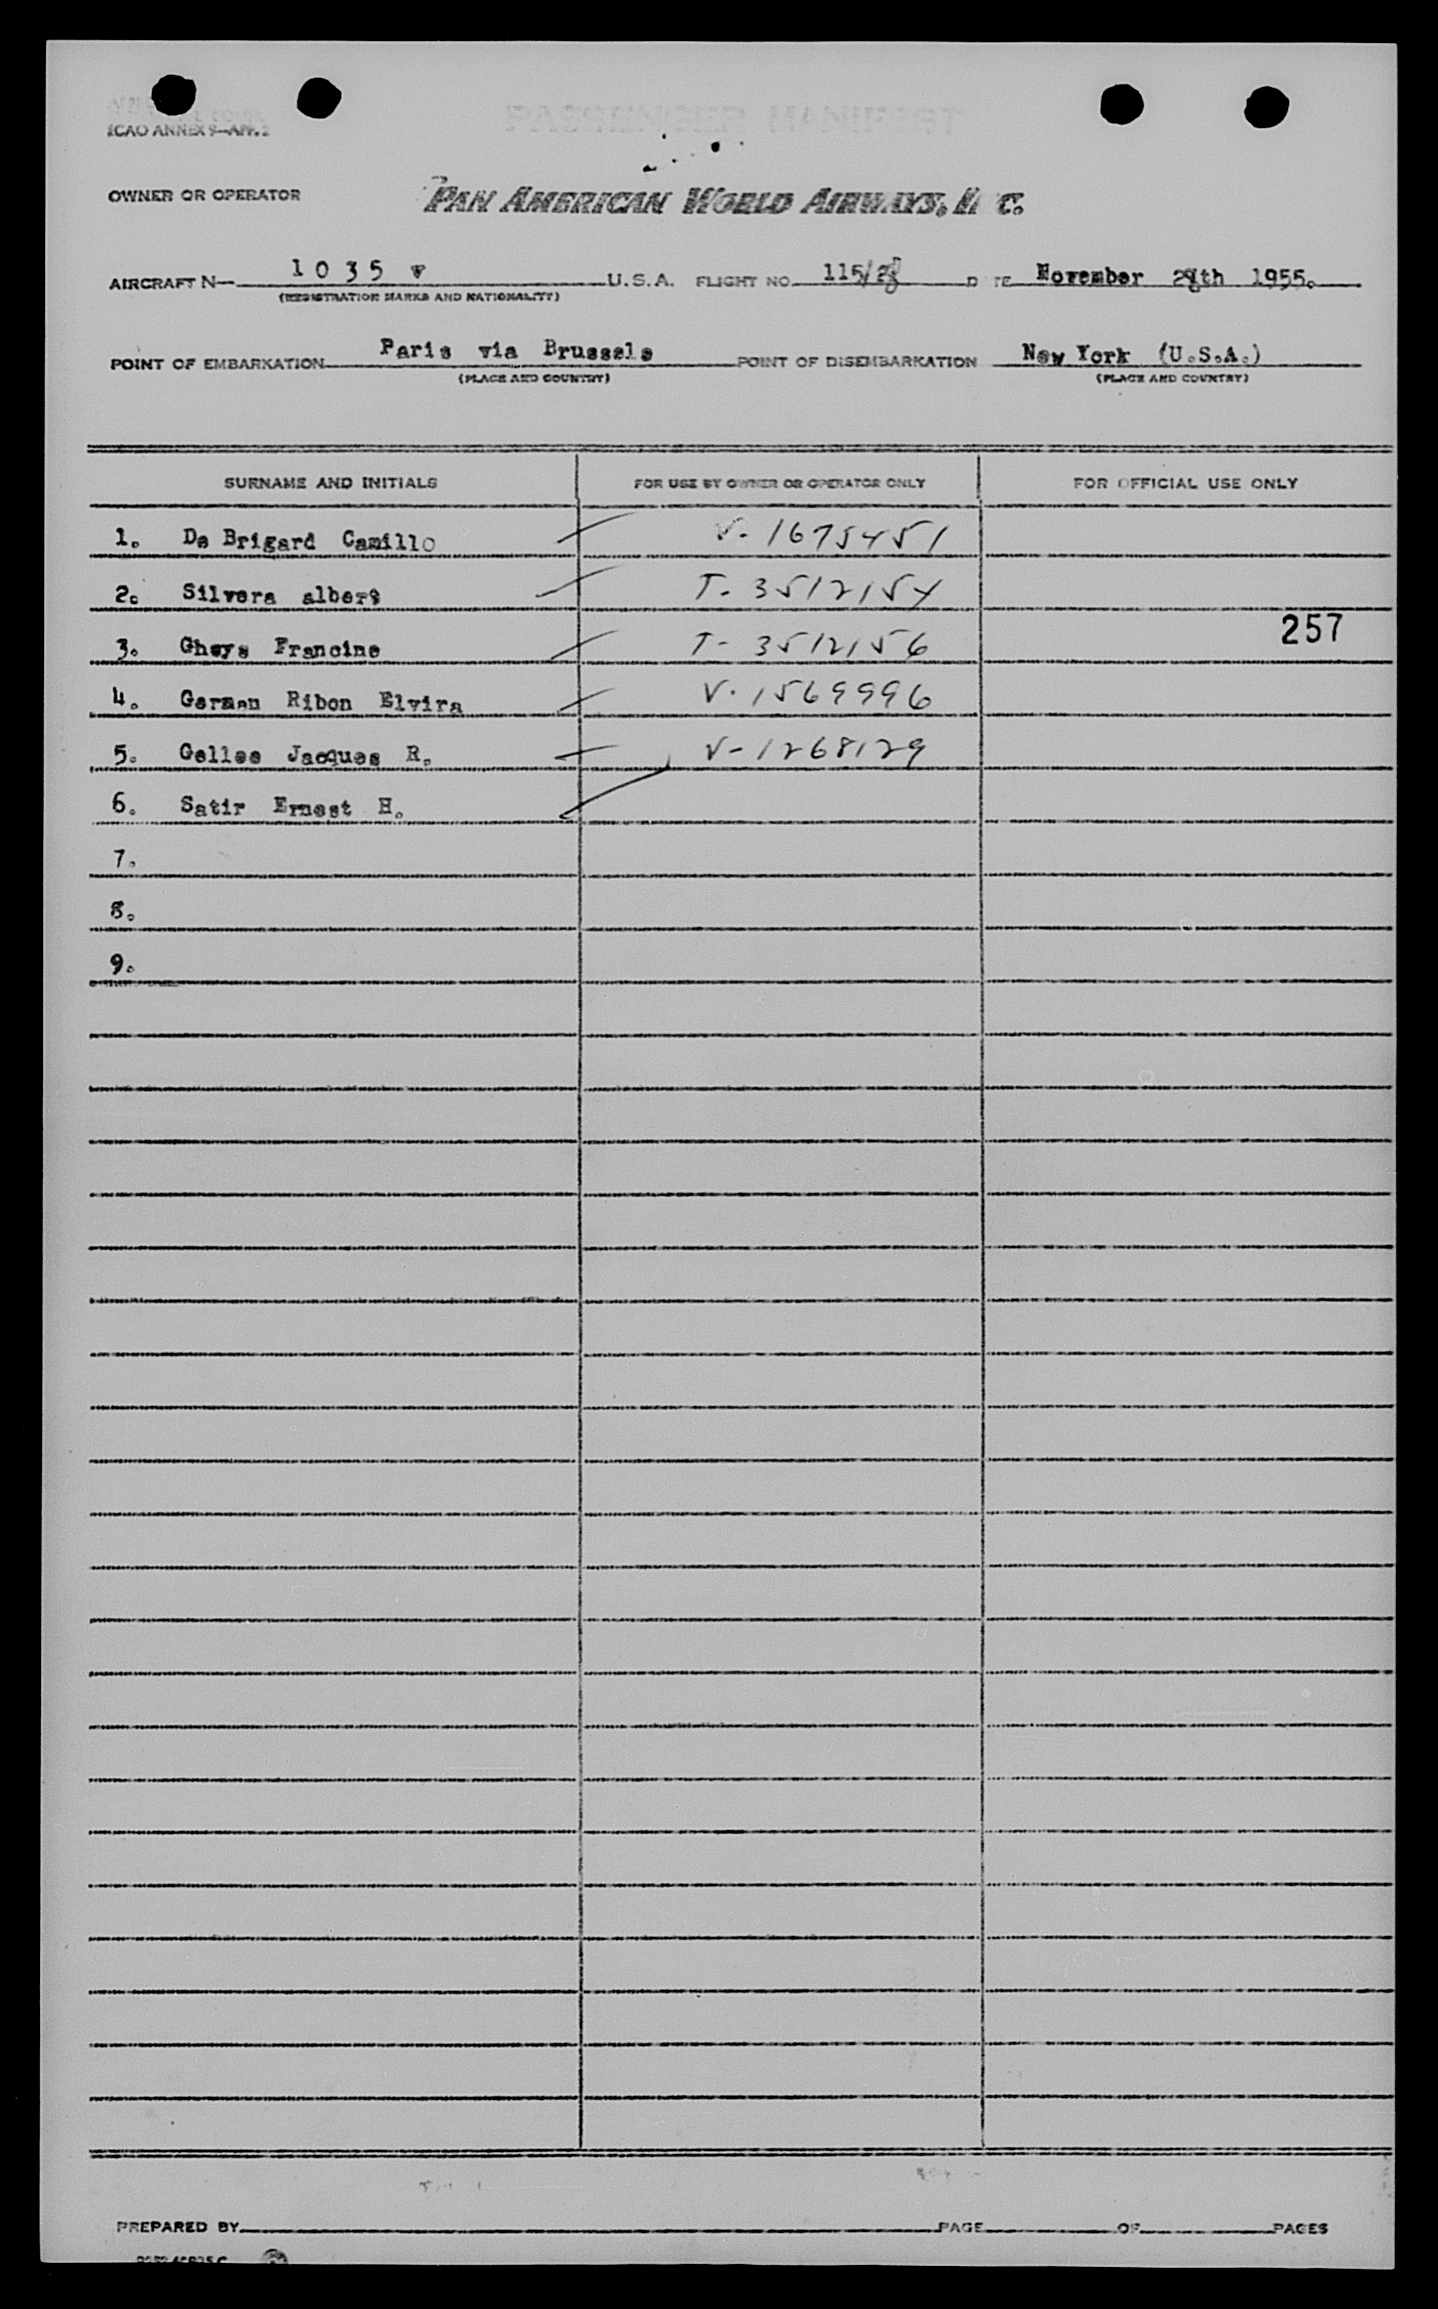 PASSENGER MANIFEST
ICAO ANNEX 9—APP. 2
OWNER OR OPERATOR PAN AMERICAN WORLD AIRWAYS, INC.
AIRCRAFT N— 1035 v U.S.A. FLIGHT NO. 115/28 DATE November 28th 1955.
(REGISTRATION MARKS AND NATIONALITY)
POINT OF EMBARKATION Paris via Brussels POINT OF DISEMBARKATION New York (U.S.A.)
(PLACE AND COUNTRY) (PLACE AND COUNTRY)
SURNAME AND INITIALS FOR USE BY OWNER OR OPERATOR ONLY FOR OFFICIAL USE ONLY
1. De Brigard Camillo V-1675451
2. Silvera albert T-3512154
257
3. Gheys Francine T-3512156
4. German Ribon Elvira V-1569996
5. Gellee Jacques R. V-1268129
6. Satir Ernest H.
7.
8.
9.
PREPARED BY PAGE OF PAGES